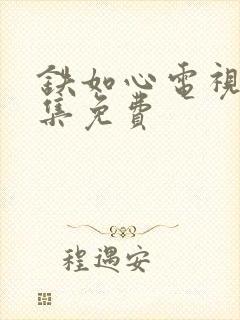 鐵如心電視
集免費
程遇安